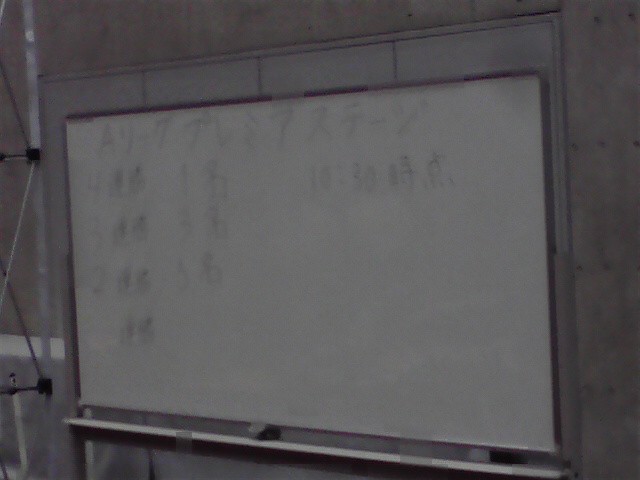 Aリーグプレミアステージ
4連勝 1名 10:30時点
3連勝 3名
2連勝 5名
連勝